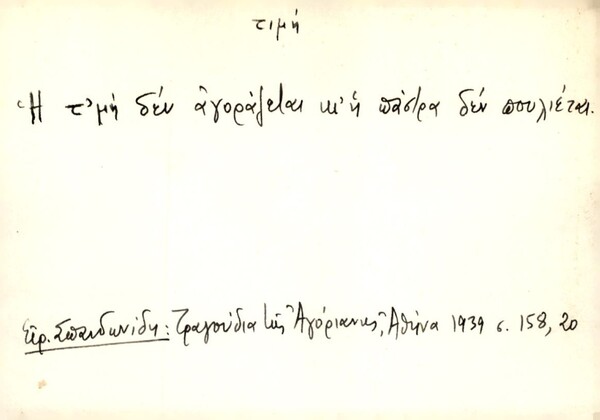 τιμή
Ἡ τ'μή δέν ἀγοράζεται κ' ἡ πάστρα δέν πουλιέται.
Εἰρ. Σπανδωνίδη: Τραγούδια τῆς Ἀγόριανης, Ἀθήνα 1939 σ. 158, 20